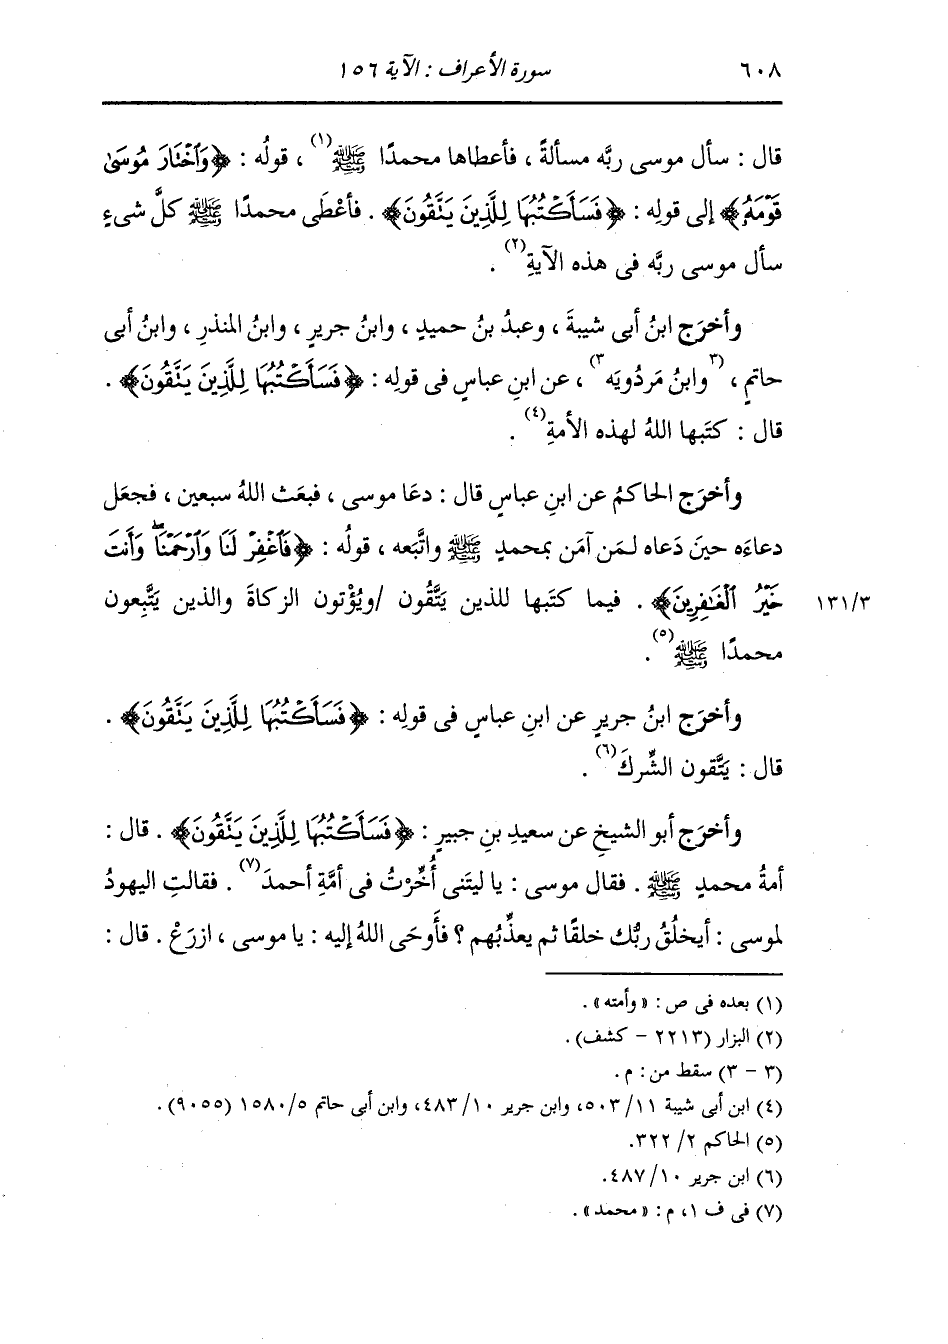 ٦٠٨ سورة الأعراف : الآية ١٥٦
قال : سأل موسى ربَّه مسألةً ، فأعطاها محمدًا ﷺ(١) ، قولُه : ﴿وَٱخْتَارَ مُوسَىٰ
قَوْمَهُۥ﴾ إلى قولِه : ﴿فَسَأَكْتُبُهَا لِلَّذِينَ يَتَّقُونَ﴾ . فأعْطَى محمدًا ﷺ كلَّ شىءٍ
سأل موسى ربَّه فى هذه الآيةِ(٢) .
وأخرَج ابنُ أبى شيبةَ ، وعبدُ بنُ حميدٍ ، وابنُ جريرٍ ، وابنُ المنذرِ ، وابنُ أبى
حاتمٍ ، (٣وابنُ مَردُويَه٣) ، عن ابنِ عباسٍ فى قولِه : ﴿فَسَأَكْتُبُهَا لِلَّذِينَ يَتَّقُونَ﴾ .
قال : كتَبها اللهُ لهذه الأمةِ(٤) .
وأخرَج الحاكمُ عن ابنِ عباسٍ قال : دعَا موسى ، فبعَث اللهُ سبعين ، فجعَل
دعاءَه حينَ دَعاه لمَن آمَن بمحمدٍ ﷺ واتَّبَعه ، قولُه : ﴿فَٱغْفِرْ لَنَا وَٱرْحَمْنَاۖ وَأَنتَ
خَيْرُ ٱلْغَـٰفِرِينَ﴾ . فيما كتَبها للذين يَتَّقُون /ويُؤْتون الزكاةَ والذين يَتَّبِعون ١٣١/٣
محمدًا ﷺ(٥) .
وأخرَج ابنُ جريرٍ عن ابنِ عباسٍ فى قولِه : ﴿فَسَأَكْتُبُهَا لِلَّذِينَ يَتَّقُونَ﴾ .
قال : يَتَّقون الشِّركَ(٦) .
وأخرَج أبو الشيخِ عن سعيدِ بنِ جبيرٍ : ﴿فَسَأَكْتُبُهَا لِلَّذِينَ يَتَّقُونَ﴾ . قال :
أمةُ محمدٍ ﷺ . فقال موسى : يا ليتَنى أُخِّرْتُ فى أمَّةِ أحمدَ(٧) . فقالتِ اليهودُ
لموسى : أيخلُقُ ربُّك خلقًا ثم يعذِّبُهم ؟ فأَوحَى اللهُ إليه : يا موسى ، ازرَعْ . قال :
(١) بعده فى ص : « وأمته » .
(٢) البزار (٢٢١٣ - كشف) .
(٣ - ٣) سقط من : م .
(٤) ابن أبى شيبة ١١/ ٥٠٣، وابن جرير ١٠/ ٤٨٣، وابن أبى حاتم ٥/ ١٥٨٠ (٩٠٥٥) .
(٥) الحاكم ٢/ ٣٢٢.
(٦) ابن جرير ١٠/ ٤٨٧.
(٧) فى ف ١، م : « محمد » .